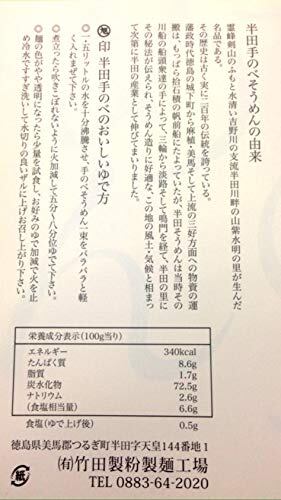 半田手のべそうめんの由来
霊峰剣山のふもと水清い吉野川の支流半田川畔の山紫水明の里が生んだ
名品である。
その歴史は古く実に二百年の伝統を誇っている。
藩政時代徳島の城下町から麻植・美馬そして上流の三好方面への物資の運
搬は、もっぱら拾石積の帆前船にたよっていたが、半田そうめんは当時その
川船の船頭衆達の手によって、三輪から淡路そして鳴門を経て、半田の里に
その秘法が伝えられ、そうめん造りに好適な、この地の風土・気候と相まっ
て次第に半田の産業として伸びてまいりました。
旭印 半田手のべのおいしいゆで方
一・五リットルの水を十分沸騰させ、手のべそうめん一束をパラパラと軽
く入れまぜて下さい。
煮立ったら吹きこぼれないように火加減して五分〜八分位ゆで下さい。
麺の色がやや透明になったら少量を試食し、お好みのゆで加減で火を止
め冷水ですすぎ洗いして水切りの良いザルに上げお召し上がり下さい。
栄養成分表示(100g当り)
エネルギー 340kcal
たんぱく質 8.6g
脂質 1.7g
炭水化物 72.5g
ナトリウム 2.6g
(食塩相当量 6.6g
食塩(ゆで上げ後) 0.5g
徳島県美馬郡つるぎ町半田字天皇144番地1
㈲竹田製粉製麺工場
TEL 0883-64-2020
紙